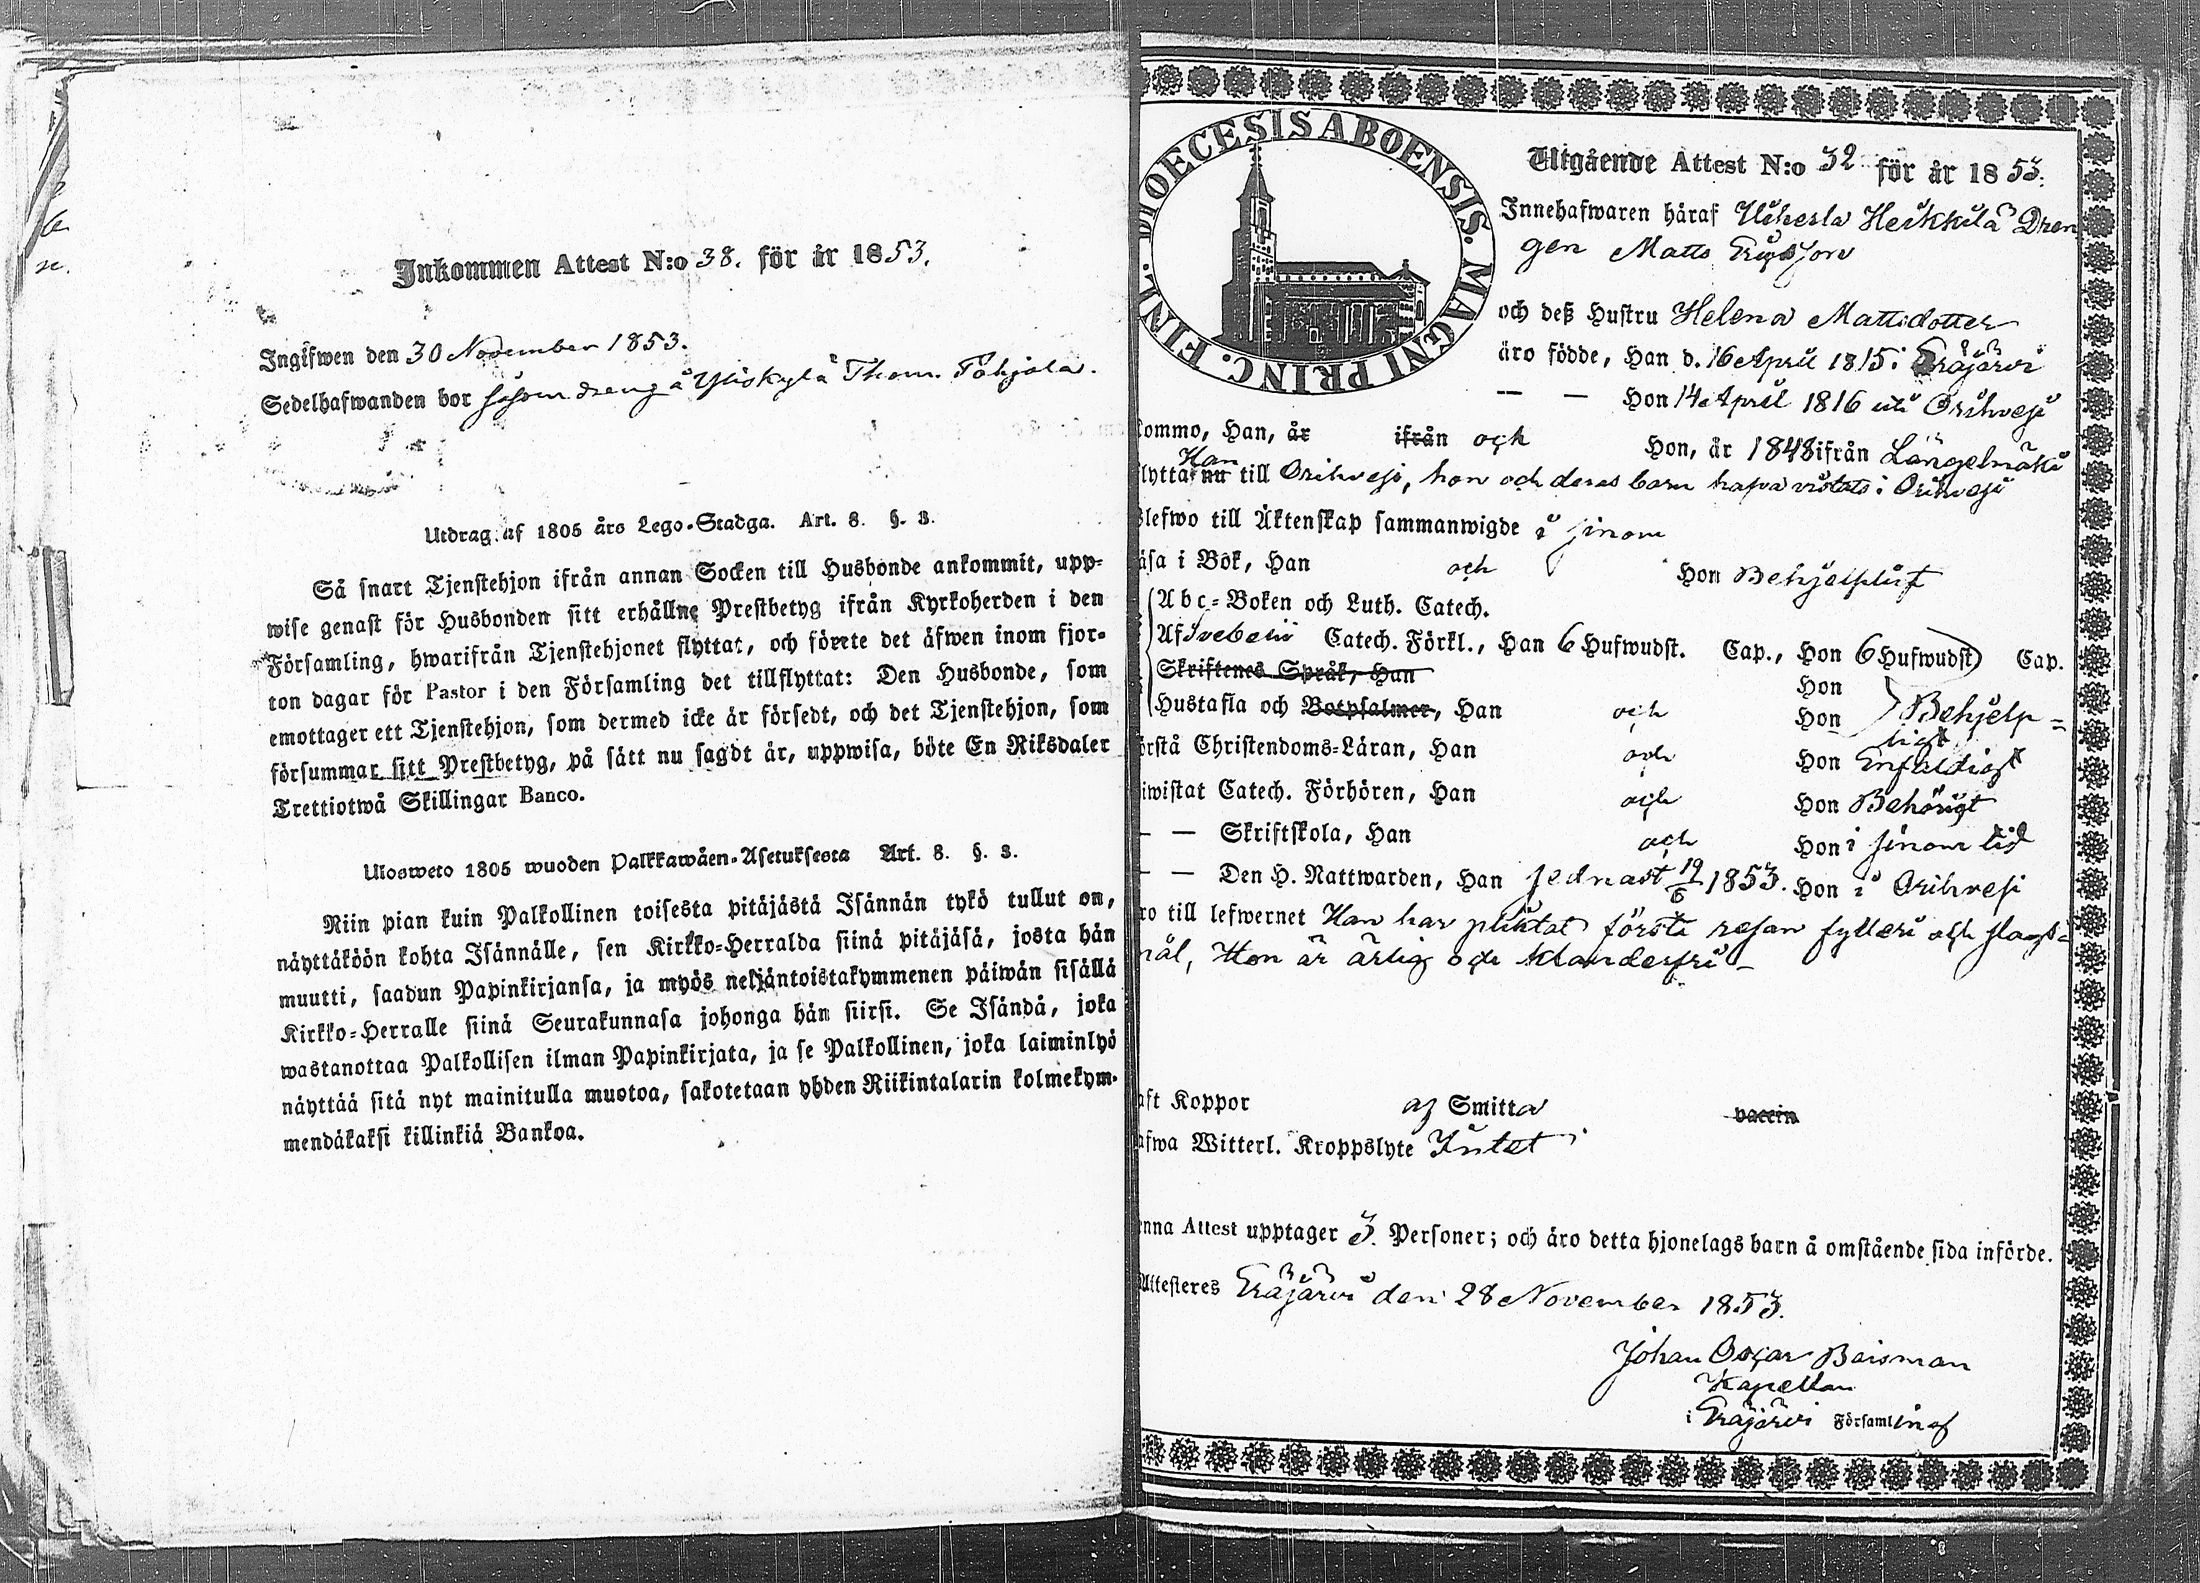 Inkommen Attest N:o 38. för år 1853.
Ingifwen den 30 November 1853.
Sedelhafwanden bor såsom dreng å Yliskylä Thom. Pohjala.
Utdrag af 1805 års Lego-Stadga. Art. 8. §. 3.
Så snart Tjenstehjon ifrån annan Socken till Husbonde ankommit, upp-
wise genast för Husbonden sitt erhållne Prestbetyg ifrån Kyrkoherden i den
Församling, hwarifrån Tjenstehjonet flyttat, och förete det äfwen inom fjor-
ton dagar för Pastor i den Församling det tillflyttat: Den Husbonde, som
emottager ett Tjenstehjon, som dermed icke är försedt, och det Tjenstehjon, som
försummar sitt Prestbetyg, på sätt nu sagdt är, uppwisa, böte En Riksdaler
Trettiotwå Skillingar Banco.
Ulosweto 1805 wuoden Palkkawäen-Asetuksesta Art. 8. §. 3.
Niin pian kuin Palkollinen toisesta pitäjästä Isännän tykö tullut on,
näyttäköön kohta Isännälle, sen Kirkko-Herralda siinä pitäjäsä, josta hän
muutti, saadun Papinkirjansa, ja myös neljäntoistakymmenen päiwän sisällä
Kirkko-Herralle siinä Seurakunnasa johonga hän siirsi. Se Isändä, joka
wastanottaa Palkollisen ilman Papinkirjata, ja se Palkollinen, joka laiminlyö
näyttää sitä nyt mainitulla muotoa, sakotetaan yhden Riikintalarin kolmekym-
mendäkaksi killinkiä Bankoa.
DIOECESIS ABOENSIS. MAGNI PRINC. FINL.
Utgående Attest N:o 32 för år 1853.
Innehafwaren häraf Uiherla Heikkilä Dren
gen Matts Ericsson
och deß Hustru Helena Mattsdotter
äro födde, Han d. 16 April 1815 i Eräjärvi
— — Hon 14 April 1816 uti Orihvesi
kommo, Han, år ifrån och Hon, år 1848 ifrån Längelmäki
Han
flytta nu till Orihvesi, hon och deras barn hafva vistats i Orihvesi
blefwo till Äktenskap sammanwigde i sinom
läsa i Bok, Han och Hon Behjelpligt
Abc-Boken och Luth. Catech.
Af Svebelii Catech. Förkl., Han 6 Hufwudst. Cap., Hon 6 Hufwudst Cap.
Skriftenes Språk, Han Hon
Hustafla och Botpsalmer, Han och Hon Behjelp-
ligt
förstå Christendoms-Läran, Han och Hon Enfaldigt
biwistat Catech. Förhören, Han och Hon Behörigt
— — Skriftskola, Han och Hon i sinom tid
— — Den H. Nattwarden, Han sednast 19/6 1853. Hon i Orihvesi
äro till lefwernet Han har pliktat första resan fylleri och slags-
mål, Hon är ärlig och klanderfri —
haft Koppor af Smitta vaccin
hafwa Witterl. Kroppslyte Intet
denna Attest upptager 3. Personer; och äro detta hjonelags barn å omstående sida införde.
Attesteres Eräjärvi den 28 November 1853.
Johan Oscar Beisman
Kapellan
i Eräjärvi Församling